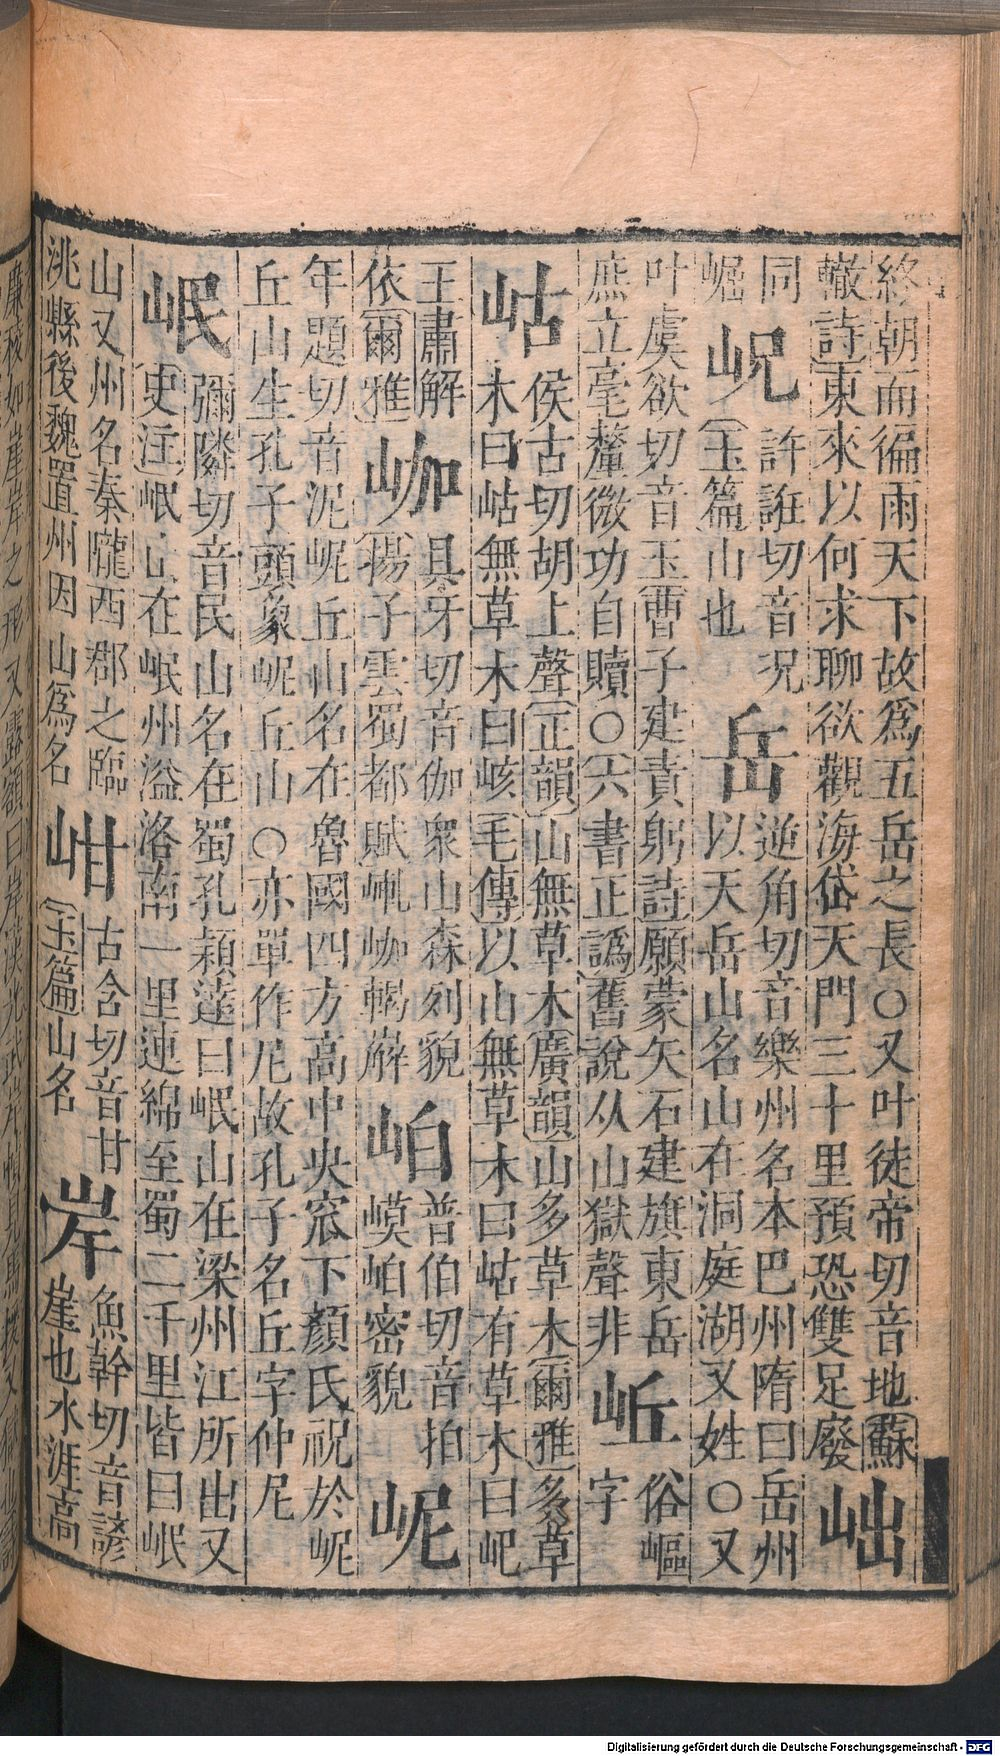 終朝而徧雨天下故爲五岳之長○又叶徒帝切音地蘇
轍詩東來以何求聊欲觀海岱天門三十里預恐雙足廢
同
崛
岲
許誑切音況
玉篇山也
岳
逆角切音樂州名本巴州隋曰岳州
以天岳山名山在洞庭湖又姓○又
叶虞欲切音玉曹子建責躬詩願蒙矢石建旗東岳
庶立毫釐微功自贖○六書正譌舊說从山獄聲非
岴
俗嶇
字
岵
侯古切胡上聲正韻山無草木廣韻山多草木爾雅多草
木曰岵無草木曰峐毛傳以山無草木曰岵有草木曰屺
王肅解
依爾雅
具牙切音伽衆山森刻貌
揚子雲蜀都賦
岶
普伯切音拍
岶密貌
年題切音泥丘山名在魯國四方高中央窊下顏氏祝於
丘山生孔子頭象丘山○亦單作尼故孔子名丘字仲尼
岷
彌隣切音民山名在蜀孔穎達曰岷山在梁州江所出又
史注岷山在岷州溢洛南一里連綿至蜀二千里皆曰岷
山又州名秦隴西郡之臨
洮縣後魏置州因山爲名
古含切音甘
玉篇山名
岸
魚幹切音諺
崖也水涯高
Digitalisierung gefördert durch die Deutsche Forschungsgemeinschaft - DFG